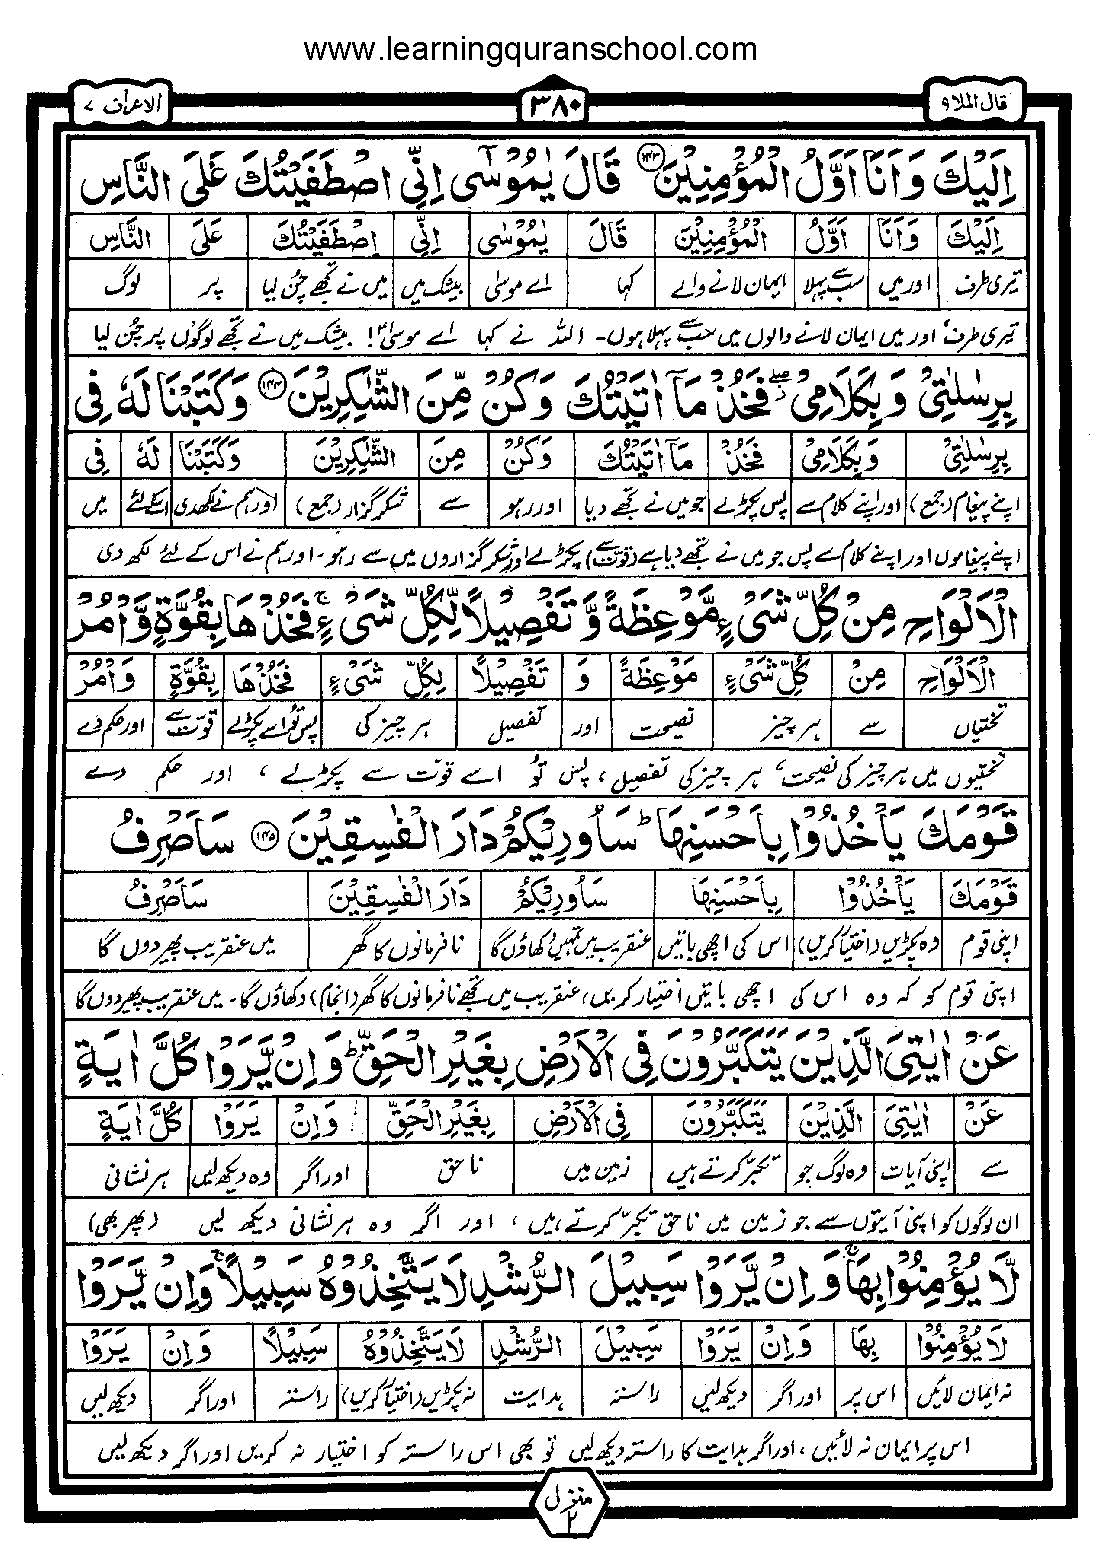 www.learningquranschool.com
قال الملا ۹
۳۸۰
الاعراف ۷
اِلَيْكَ وَاَنَا اَوَّلُ الْمُؤْمِنِيْنَ ۱۴۳ قَالَ يٰمُوْسٰٓى اِنِّى اصْطَفَيْتُكَ عَلَى النَّاسِ
اِلَيْكَ وَاَنَا اَوَّلُ الْمُؤْمِنِيْنَ قَالَ يٰمُوْسٰٓى اِنِّى اصْطَفَيْتُكَ عَلَى النَّاسِ
تیری طرف اور میں سب سے پہلا ایمان لانے والے کہا اے موسٰی بیشک میں میں نے تجھے چن لیا پر لوگ
تیری طرف اور میں ایمان لانے والوں میں سب سے پہلا ہوں۔ اللہ نے کہا اے موسٰیؑ! بیشک میں نے تجھے لوگوں پر چن لیا
بِرِسٰلٰتِىْ وَبِكَلَامِىْ ۖ فَخُذْ مَآ اٰتَيْتُكَ وَكُنْ مِّنَ الشّٰكِرِيْنَ ۱۴۴ وَكَتَبْنَا لَهٗ فِى
بِرِسٰلٰتِىْ وَبِكَلَامِىْ فَخُذْ مَآ اٰتَيْتُكَ وَكُنْ مِنَ الشّٰكِرِيْنَ وَكَتَبْنَا لَهٗ فِى
اپنے پیغام (جمع) اور اپنے کلام سے پس پکڑ لے جو میں نے تجھے دیا اور رہو سے شکر گزار (جمع) اور ہم نے لکھدی اسکے لئے میں
اپنے پیغاموں اور اپنے کلام سے پس جو میں نے تجھے دیا ہے (قوت سے) پکڑ لے اور شکر گزاروں میں سے رہو۔ اور ہم نے اس کے لئے لکھ دی
الْاَلْوَاحِ مِنْ كُلِّ شَىْءٍ مَّوْعِظَةً وَّتَفْصِيْلًا لِّكُلِّ شَىْءٍ ۚ فَخُذْهَا بِقُوَّةٍ وَّاْمُرْ
الْاَلْوَاحِ مِنْ كُلِّ شَىْءٍ مَوْعِظَةً وَ تَفْصِيْلًا لِكُلِّ شَىْءٍ فَخُذْهَا بِقُوَّةٍ وَاْمُرْ
تختیاں سے ہر چیز نصیحت اور تفصیل ہر چیز کی پس تو اسے پکڑ لے قوت سے اور حکم دے
تختیوں میں ہر چیز کی نصیحت، ہر چیز کی تفصیل، پس تو اسے قوت سے پکڑ لے، اور حکم دے
قَوْمَكَ يَاْخُذُوْا بِاَحْسَنِهَا ؕ سَاُورِيْكُمْ دَارَ الْفٰسِقِيْنَ ۱۴۵ سَاَصْرِفُ
قَوْمَكَ يَاْخُذُوْا بِاَحْسَنِهَا سَاُورِيْكُمْ دَارَ الْفٰسِقِيْنَ سَاَصْرِفُ
اپنی قوم وہ پکڑیں (اختیار کریں) اس کی اچھی باتیں عنقریب میں تمہیں دکھاؤں گا نافرمانوں کا گھر میں عنقریب پھیر دوں گا
اپنی قوم کو کہ وہ اس کی اچھی باتیں اختیار کریں، عنقریب میں تجھے نافرمانوں کا گھر (انجام) دکھاؤں گا۔ میں عنقریب پھیر دوں گا
عَنْ اٰيٰتِىَ الَّذِيْنَ يَتَكَبَّرُوْنَ فِى الْاَرْضِ بِغَيْرِ الْحَقِّ ؕ وَاِنْ يَّرَوْا كُلَّ اٰيَةٍ
عَنْ اٰيٰتِىَ الَّذِيْنَ يَتَكَبَّرُوْنَ فِى الْاَرْضِ بِغَيْرِ الْحَقِّ وَاِنْ يَرَوْا كُلَّ اٰيَةٍ
سے اپنی آیات وہ لوگ جو تکبر کرتے ہیں زمین میں ناحق اور اگر وہ دیکھ لیں ہر نشانی
ان لوگوں کو اپنی آیتوں سے جو زمین میں ناحق تکبر کرتے ہیں، اور اگر وہ ہر نشانی دیکھ لیں (پھر بھی)
لَّا يُؤْمِنُوْا بِهَا ۚ وَاِنْ يَّرَوْا سَبِيْلَ الرُّشْدِ لَا يَتَّخِذُوْهُ سَبِيْلًا ۚ وَاِنْ يَّرَوْا
لَا يُؤْمِنُوْا بِهَا وَاِنْ يَرَوْا سَبِيْلَ الرُّشْدِ لَا يَتَّخِذُوْهُ سَبِيْلًا وَاِنْ يَرَوْا
نہ ایمان لائیں اس پر اور اگر دیکھ لیں راستہ ہدایت نہ پکڑیں (اختیار کریں) راستہ اور اگر دیکھ لیں
اس پر ایمان نہ لائیں، اور اگر ہدایت کا راستہ دیکھ لیں تو بھی اس راستہ کو اختیار نہ کریں اور اگر دیکھ لیں
منزل ۲